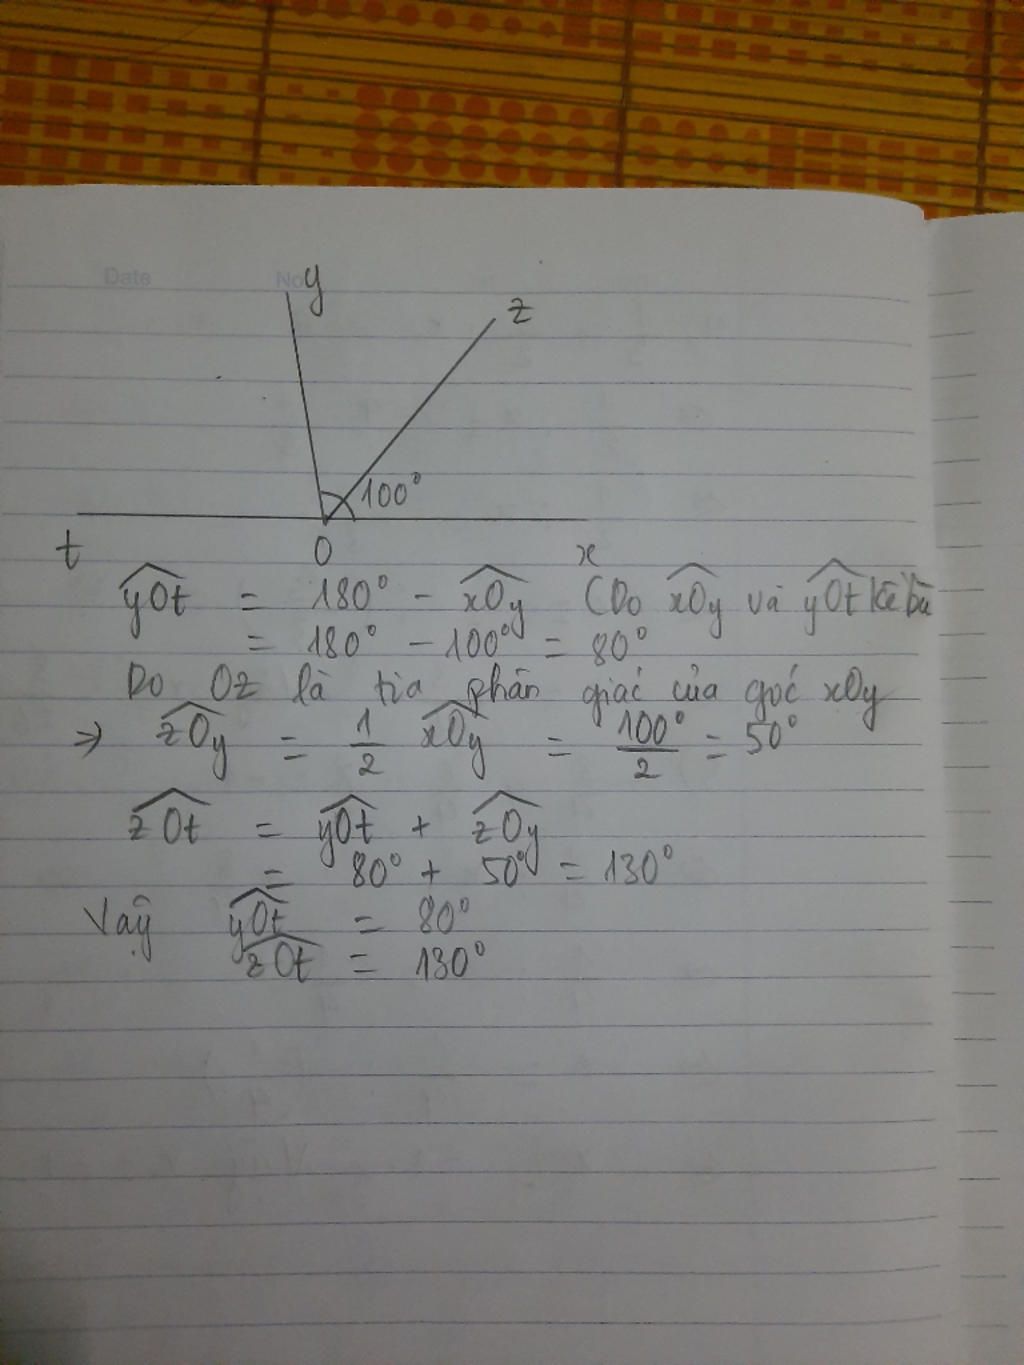 Date No
y
z
100°
t O x
yOt = 180° - xOy (Do xOy và yOt kề bù
= 180° - 100° = 80°
Do Oz là tia phân giác của góc xOy
⇒ zOy = 1/2 xOy = 100°/2 = 50°
zOt = yOt + zOy
= 80° + 50° = 130°
Vậy yOt = 80°
zOt = 130°